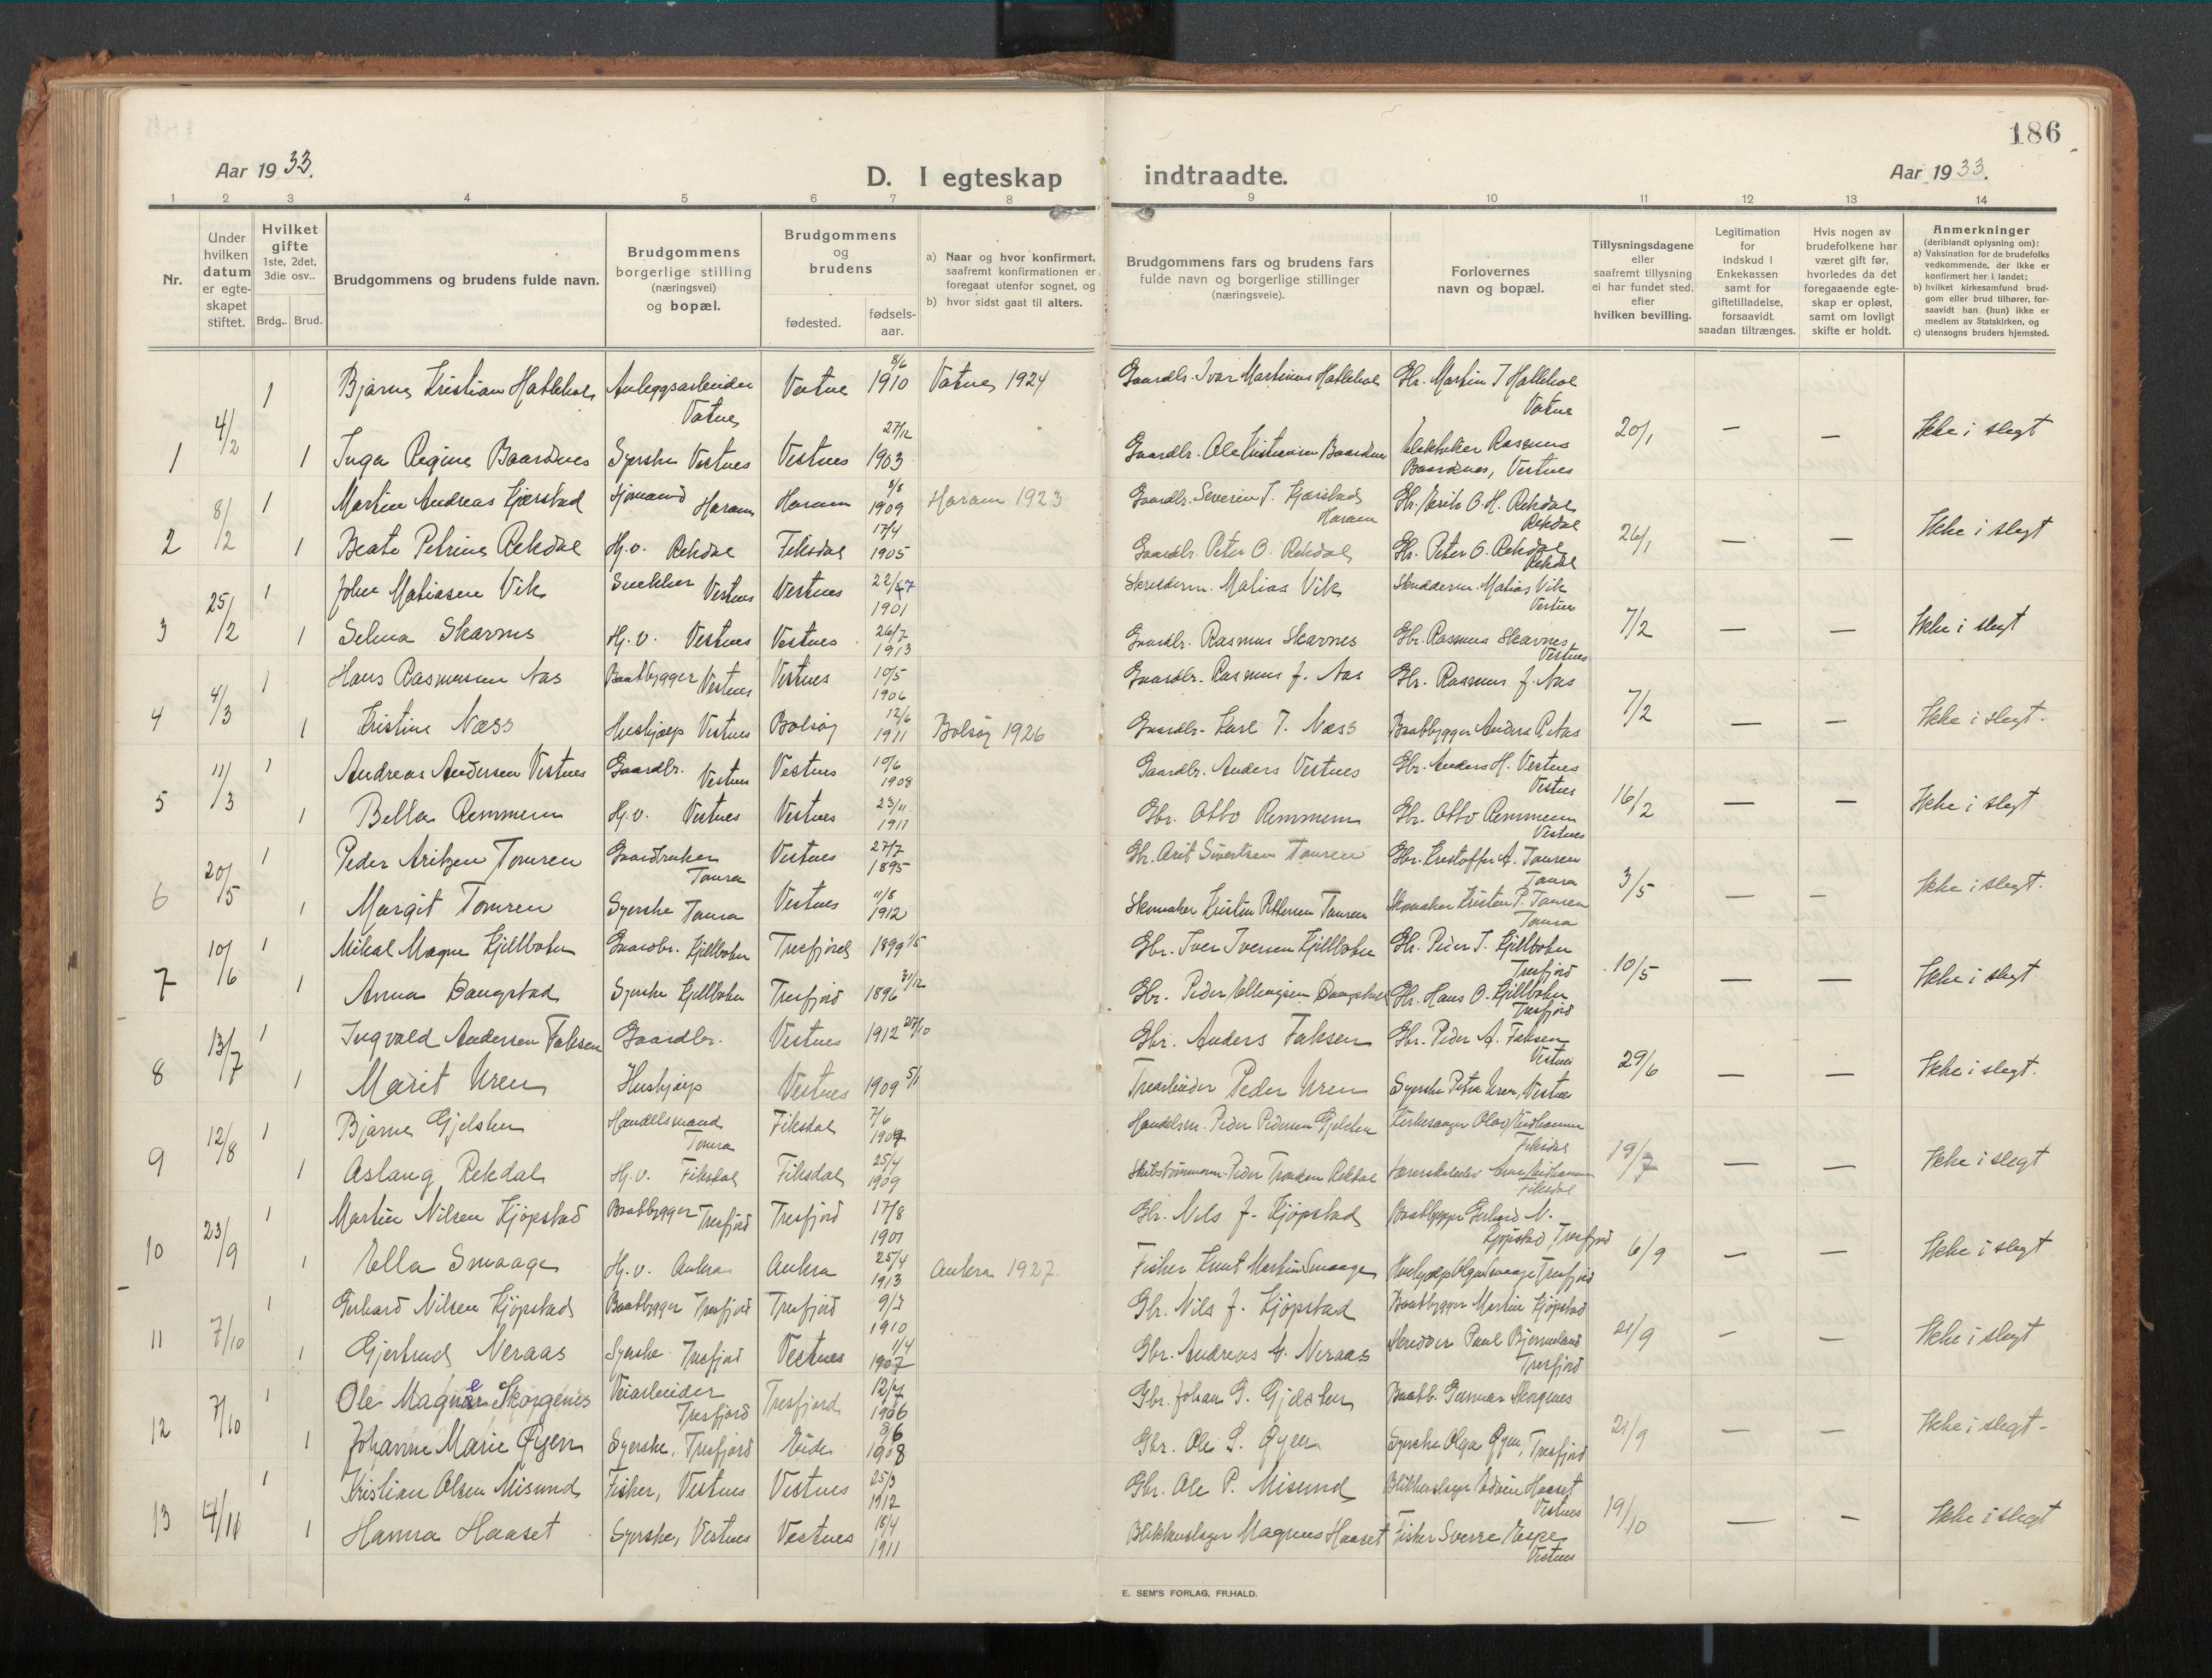 186
Aar 1933.
D. I egteskap indtraadte.
Aar 1933.
1 2 3 4 5 6 7 8 9 10 11 12 13 14
Nr.
Under hvilken datum er egte-skapet stiftet.
Hvilket gifte 1ste, 2det, 3die osv..
Brdg.. Brud.
Brudgommens og brudens fulde navn.
Brudgommens borgerlige stilling (næringsvei) og bopæl.
Brudgommens og brudens
fødested.
fødsels-aar.
a) Naar og hvor konfirmert, saafremt konfirmationen er foregaat utenfor sognet, og
b) hvor sidst gaat til alters.
Brudgommens fars og brudens fars fulde navn og borgerlige stillinger (næringsveie).
Forlovernes navn og bopæl.
Tillysningsdagene eller saafremt tillysning ei har fundet sted. efter hvilken bevilling.
Legitimation for indskud i Enkekassen samt for giftetilladelse, forsaavidt saadan tiltrænges.
Hvis nogen av brudefolkene har været gift før, hvorledes da det foregaaende egte-skap er opløst, samt om lovligt skifte er holdt.
Anmerkninger (deriblandt oplysning om):
a) Vaksination for de brudefolks vedkommende, der ikke er konfirmert her i landet;
b) hvilket kirkesamfund brud-gom eller brud tilhører, for-saavidt han (hun) ikke er medlem av Statskirken, og
c) utensogns bruders hjemsted.
1 Bjarne Kristian Hatlehol Anleggsarbeider Vatne Vatne 8/6 1910 Vatne 1924 Gaardbr. Ivar Martinus Hatlehol Gbr. Martin I Hatlehol Vatne
1 4/2 1 Inga Regine Baardnes Syerske Vestnes Vestnes 27/12 1903 Gaardbr. Ole Kristiansen Baardnes Rasmus Baardnes, Vestnes 20/1 — — Ikke i slegt
1 Martin Andreas Kjærstad Sjømand Haram Haram 8/8 1909 Haram 1923 Gaardbr. Severin J. Kjærstad Haram Gbr. O. H. Rekdal Rekdal
2 8/2 1 Beate Petrine Rekdal Hj.v. Rekdal Fiksdal 17/4 1905 Gaardbr. Peter O. Rekdal Gbr. Peter O. Rekdal Rekdal 26/1 — — Ikke i slegt
1 Johan Matiasen Vik Snekker Vestnes Vestnes 22/7 1901 Matias Vik Matias Vik Vestnes
3 25/2 1 Selma Skarnes Hj.v. Vestnes Vestnes 26/7 1913 Gaardbr. Rasmus Skavnes Gbr. Rasmus Skavnes Vestnes 7/2 — — Ikke i slegt
1 Hans Rasmussen Aas Baatbygger Vestnes Vestnes 10/5 1906 Gaardbr. Rasmus J. Aas Gbr. Rasmus J. Aas
4 4/3 1 Kristine Næss Hushjælp Vestnes Bolsøy 12/6 1911 Bolsøy 1926 Gaardbr. Karl T. Næss Baatbygger Anders R. Aas 7/2 — — Ikke i slegt.
1 Andreas Andersen Vestnes Gaardbr. Vestnes Vestnes 10/6 1908 Gaardbr. Anders Vestnes Gbr. Anders H. Vestnes Vestnes
5 11/3 1 Bella Remmem Hj.v. Vestnes Vestnes 23/11 1911 Gbr. Otto Remmem Gbr. Otto Remmem Vestnes 16/2 — — Ikke i slegt
1 Peder Aritzen Tomren Gaardbruker Tomra Vestnes 27/7 1895 Gbr. Arit Sivertsen Tomren Gbr. Kristoffer A. Tomren Tomra
6 20/5 1 Margit Tomren Syerske Tomra Vestnes 11/8 1912 Skomaker Kristen Pettersen Tomren Skomaker Kristen P. Tomren Tomra 3/5 — — Ikke i slegt.
1 Mikal Magne Kjellbotn Gaardbr. Kjellbotn Tresfjord 1899 1/5 Gbr. Iver Iversen Kjellbotn Gbr. Peder I. Kjellbotn Tresfjord
7 10/6 1 Anna Daugstad Syerske Kjellbotn Tresfjord 1896 31/12 Gbr. Peder Daugstad Gbr. Hans O. Kjellbotn Tresfjord 10/5 — — Ikke i slegt
1 Ingvald Andersen Faksen Gaardbr. Vestnes 1912 27/10 Gbr. Anders Faksen Gbr. Peder A. Faksen Vestnes
8 13/7 1 Marit Uren Hushjælp Vestnes 1909 5/1 Træarbeider Peder Uren Syerske Petra Uren, Vestnes 29/6 — — Ikke i slegt.
1 Bjarne Gjelsten Handelsmand Tomra Fiksdal 7/6 1909 Handelsm. Peder Pedersen Gjelsten Kirkesanger Olav Fiksdal
9 12/8 1 Aslaug Rekdal Hj.v. Fiksdal Fiksdal 25/4 1909 Peder Rekdal Fiksdal 19/7 — — Ikke i slegt
1 Martin Nilsen Kjøpstad Baatbygger Tresfjord Tresfjord 17/8 1901 Gbr. Nils J. Kjøpstad Baatbygger Gerhard N. Kjøpstad, Tresfjord
10 23/9 1 Ella Smaage Hj.v. Aukra Aukra 25/4 1913 Aukra 1927. Fisker Knut Martin Smaage Hushjælp Olga Smaage Tresfjord 6/9 — — Ikke i slegt
1 Gerhard Nilsen Kjøpstad Baatbygger Tresfjord Tresfjord 9/7 1910 Gbr. Nils J. Kjøpstad Baatbygger Martin Kjøpstad
11 7/10 1 Gjertrud Neraas Syerske Tresfjord Vestnes 1/4 1907 Gbr. Andreas A. Neraas Skredder Paul Bjermeland Tresfjord 21/9 — — Ikke i slegt
1 Ole Magne Skorgenes Veiarbeider Tresfjord Tresfjord 12/7 1906 Gbr. Johan G. Gjelsten Baatb. Gunnar Skorgenes
12 7/10 1 Johanne Marie Øyen Syerske, Tresfjord Eide 8/6 1908 Gbr. Ole G. Øyen Syerske Olga Øyen, Tresfjord 21/9 — — Ikke i slegt -
1 Kristian Olsen Misund Fisker, Vestnes Vestnes 25/3 1912 Gbr. Ole P. Misund Blikkenslager Edvin Haaset Vestnes
13 1 Hanna Haaset Syerske, Vestnes Vestnes 18/4 1911 Blikkenslager Magnus Haaset Fisker Sverre Vestnes 19/10 — — Ikke i slegt
E. SEM'S FORLAG, FR.HALD.